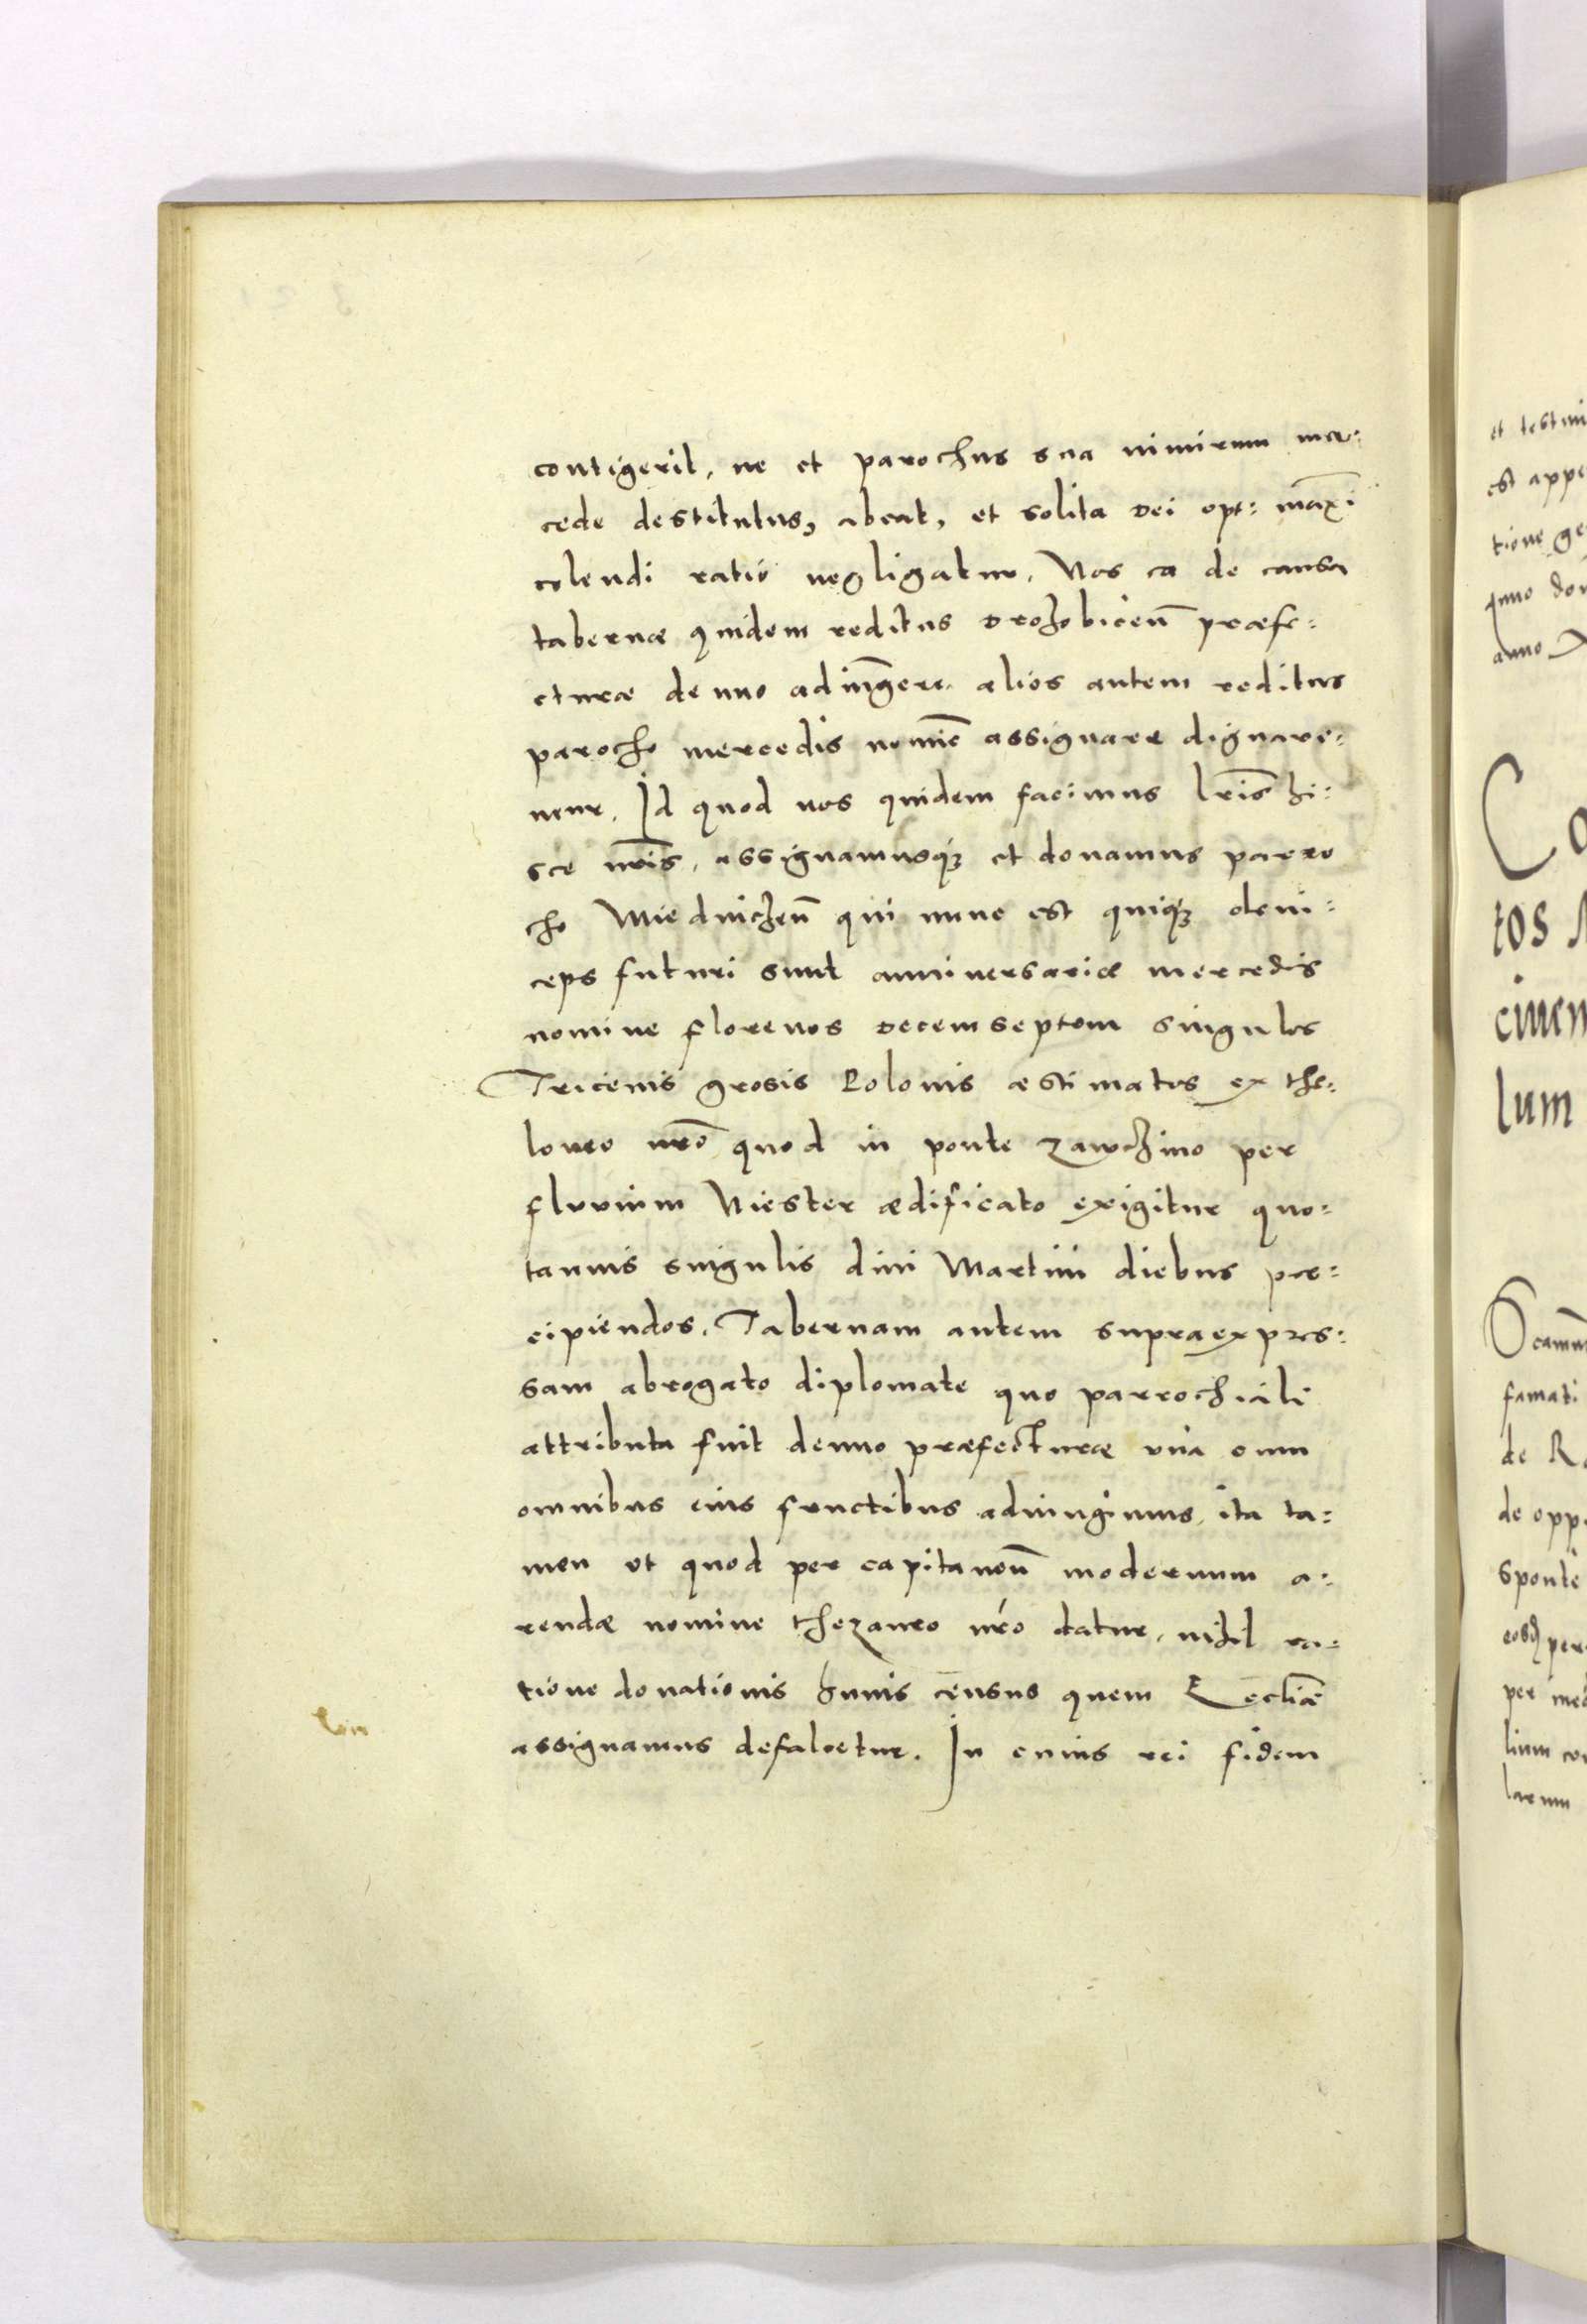 contigerit, ne et parochus sua nimirum mer:
cede destitutus, abeat, et solita Dei opt: maxi
colendi ratio negligatur. Nos ea de causa
tabernæ quidem reditus Drohobiceñ præfe:
cturæ denuo adiũgere alios autem reditus
parocho mercedis nomie assignare dignare:
mur. Id quod nos quidem facimus lris hi:
sce nris, assignamusq; et donamus parro
cho Miedniczeñ qui nunc est quiq; dein:
ceps futuri sunt anniversariæ mercedis
nomine florenos Decem septem singulos
Tricenis grosis Polonis æstimatos ex the:
loneo nro quod in ponte Zawchino per
fluvium Niester ædificato exigitur quo:
tannis singulis divi Martini diebus per:
cipiendos. Tabernam autem supra expres:
sam abrogato diplomate quo parrochiali
attributa fuit denuo præfecturæ una cum
omnibus eius fructibus adiungimus, ita ta:
men ut quod per capitaneũ modernum a:
rendæ nomine thezauro nro datur, nihil ra:
tione donationis huius census quem Eccliæ
assignamus defalcetur. In cuius rei fidem
et testim
est appe
tione ge
anno
Co
tos
cinem
lum
famati
de R
de opp
sponte
per
per
larum